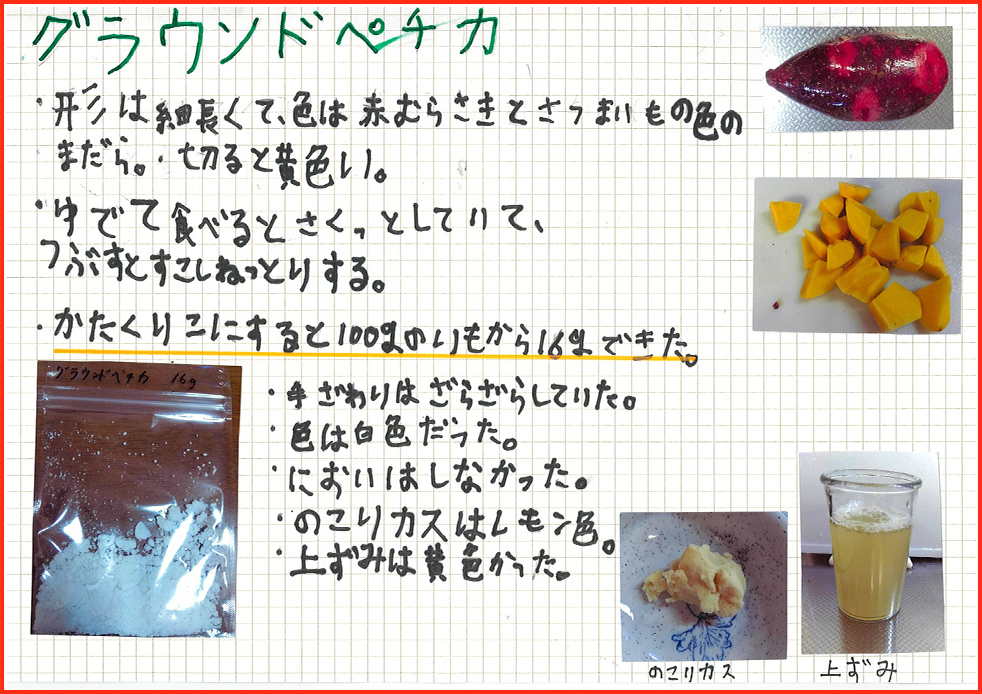 グラウンドペチカ
・形は細長くて、色は赤むらさきとさつまいもの色の
まだら。・切ると黄色い。
・ゆでて食べるとさくっとしていて、
つぶすとすこしねっとりする。
・かたくりこにすると100gのいもから16gできた。
グラウンドペチカ 16g
・手ざわりはざらざらしていた。
・色は白色だった。
・においはしなかった。
・のこりカスはレモン色。
・上ずみは黄色かった。
のこりカス
上ずみ